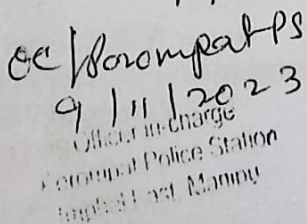 OC/Porompat-PS
9/11/2023
Officer-in-charge
Porompat Police Station
Imphal East, Manipur